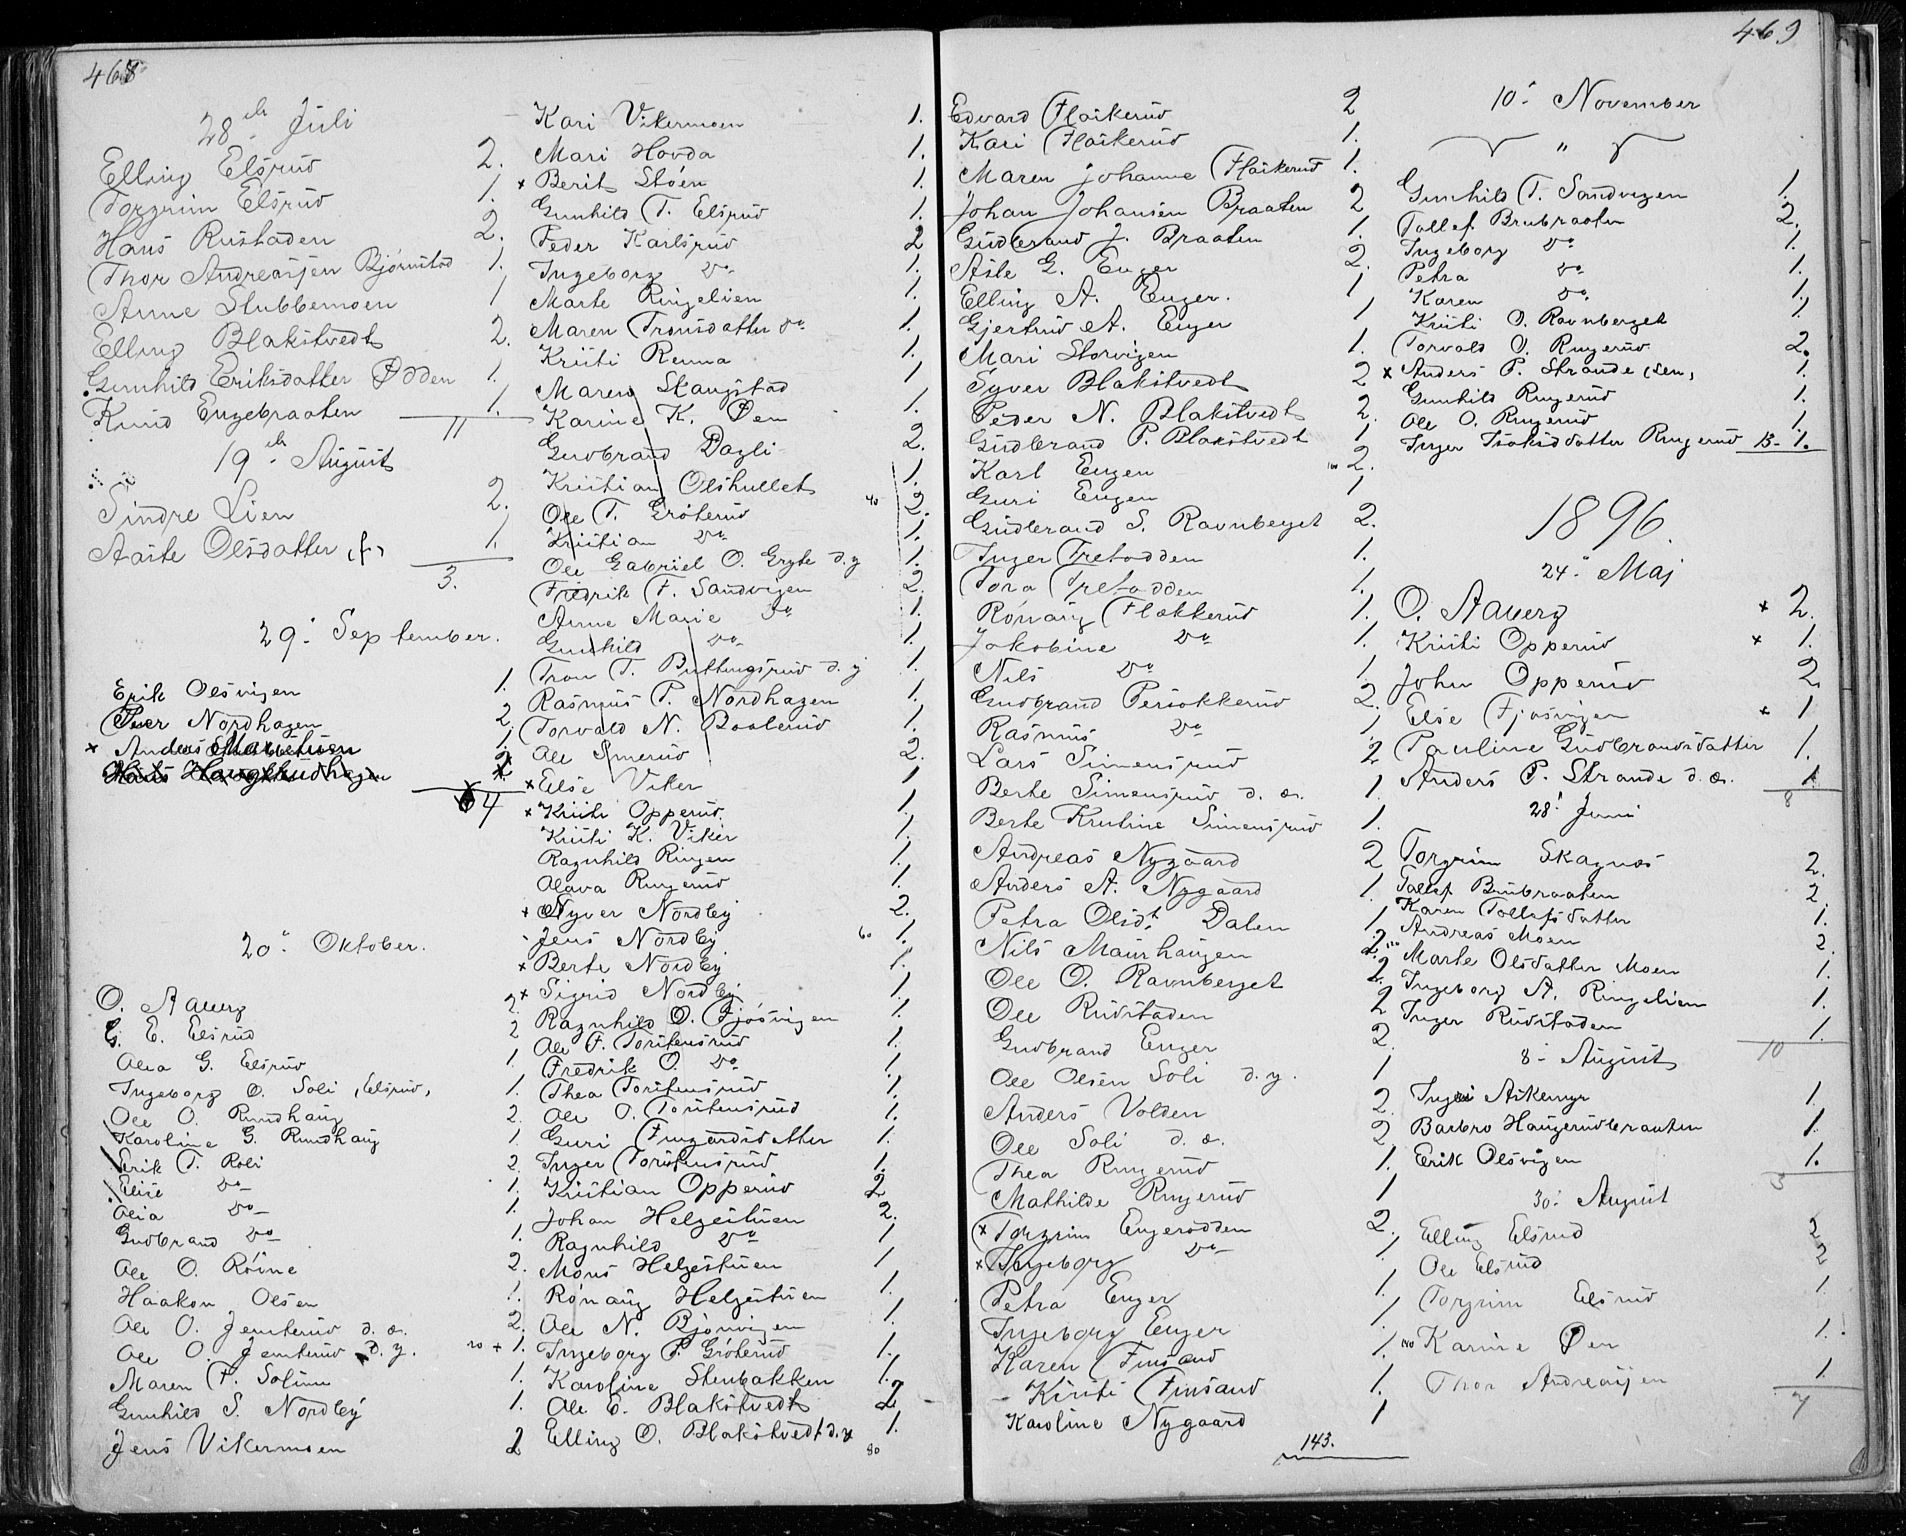 468
28de Juli
Elling Elsrud 2.
Torgrim Elsrud 1.
Hans Rustaden 2.
Thor Andreassen Bjørnstad 1.
Anne Stubbemoen 1
Elling Blakstvedt 2.
Gunhild Eriksdatter Ødden 1.
Knud Engebraaten 1.
11
19de August
Sindre Lien 2.
Aaste Olsdatter (f) 1.
3.
29. September.
Erik Olsvigen 1.
Peer Nordhagen 2.
x Anders 1.
2
4
20. Oktober.
O. Aaberg 2.
G. E. Elsrud 2
Olea G. Elsrud 1
Ingeborg O. Soli, Elsrud, 1.
Ole O. Rundhaug 2.
Karoline G. Rundhaug 1.
Erik T. Roli 2.
Elise do 1.
Olea do 1.
Gudbrand do 1.
Ole O. Roine 2.
Haakon Olsen 1.
Ole O. Jemterud d. æ. 2.
Ole O. Jemterud d. y. 20 + 1.
Maren P. Solum 1.
Gunhild S. Nordby 1.
Jens Vikermoen 2
Kari Vikermoen 1.
Mari Hovda 1.
x Berit Støen 1.
Gunhild T. Elsrud 1.
Peder Karlsrud 2
Ingeborg do 1.
Marte Ringelien 1.
Maren Tronsdatter do 1.
Kristi Renna 1.
Maren Skangstad 1
Karine K. Øen 1.
Gudbrand Dagli 2.
Kristian Olshullet 1.
Ole T. Grøterud 40 2.
Kristian do 1.
Ole Gabriel O. Gryte d. y 1.
Fredrik F. Sandvigen 2.
Anne Marie do 1.
Gunhild do 1.
Tron T. Buttingsrud d. y 1.
Rasmus P. Nordhagen 1.
Torvald N. Baalerud 1.
Ole Smerud 2.
x Else Viker 1
x Kristi Opperud 1.
Kristi K. Viker 1.
Ragnhild Ringen 1.
Olava Ringerud 1.
x Syver Nordby 2.
Jens Nordby 60 1.
x Berte Nordby 1.
x Sigrid Nordby 1.
Ragnhild O. Fjøsvigen 1.
Ole F. Torstensrud 1.
Fredrik O. do 1.
Thea Torstensrud 1.
Ole O. Torstensrud 1.
Guri Fingardsdatter 1.
Inger Torstensrud 1.
Kristian Opperud 2
Johan Helgestuen 2.
Ragnhild do 1
Mons Helgestuen 1
Rønaug Helgestuen 1.
Ole N. Bjønvigen 1.
Ingeborg P. Grøterud 1.
Karoline Stenbakken 1.
Ole E. Blakstvedt 2
Elling O. Blakstvedt d. y 80 1.
469
Edvard Flaskerud 2
Kari Flaskerud 1.
Maren Johanne Flaskerud 1.
Johan Johansen Braaten 2
Gudbrand J. Braaten 1.
Asle G. Enger 2.
Elling A. Enger. 1
Gjertrud A. Enger 1
Mari Storvigen 1.
Syver Blakstvedt 2
Peder N. Blakstvedt 2.
Gudbrand P. Blakstvedt 1
Karl Engen 100 2.
Guri Engen 1
Gudbrand S. Ravnberget 2.
Inger Tretodden 1.
Tora Tretodden 1.
Rønaug Flakkerud 1.
Jakobine do 1.
Nils do 1.
Gudbrand Persokkerud 2.
Rasmus do 1
Lars Simensrud 2
Berte Simensrud d. æ. 1.
Berte Kristine Simensrud 1.
Andreas Nygaard 2
Anders A. Nygaard 1.
Petra Olsdt. Dalen 1
Nils Maurhaugen 2.
Ole O. Ravnberget 2.
Ole Rudstaden 2
Gudbrand Enger 2.
Ole Olsen Soli d. y. 1
Anders Volden 2
Ole Soli d. æ. 2
Thea Ringerud 1.
Mathilde Ringerud 1
x Torgrim Engerodden 2.
x Ingeborg do 1.
Petra Enger 1.
Ingeborg Enger 1.
Karen Finsand 1.
Kristi Finsand 1.
Karoline Nygaard 1
143.
10. November
"
Gunhild T. Sandvigen 1.
Tollef Brubraaten 2.
Ingeborg do 1.
Petra do 1.
Karen do 1.
Kristi O. Ravnberget 1.
Torvald O. Ringerud 2.
x Anders P. Strande (sen, 1.
Gunhild Ringerud 1.
Ole O. Ringerud 1.
Inger Isaksdatter Ringerud 13 - 1.
1896.
24. Maj
O. Aaberg x 2.
Kristi Opperud x 1.
John Opperud 2
Else Fjøsvigen x 1
Pauline Gudbrandsdatter 1.
Anders P. Strande d. æ. 1
8
28. Juni
Torgrim Skagnæs 2.
Tollef Brubraaten 2.
Karen Tollefsdatter 1.
Andreas Moen 2.
Marte Olsdatter Moen 1.
Ingeborg A. Ringelien 1.
Inger Rudstaden 1.
10
8. August
Inger Askemyr 1.
Barbro Haugerudbraaten 1.
Erik Olsvigen 1.
3
30. August
Elling Elsrud 2
Ole Elsrud 2
Torgrim Elsrud 1.
140 Karine Øen 1.
Thor Andreassen 1.
7